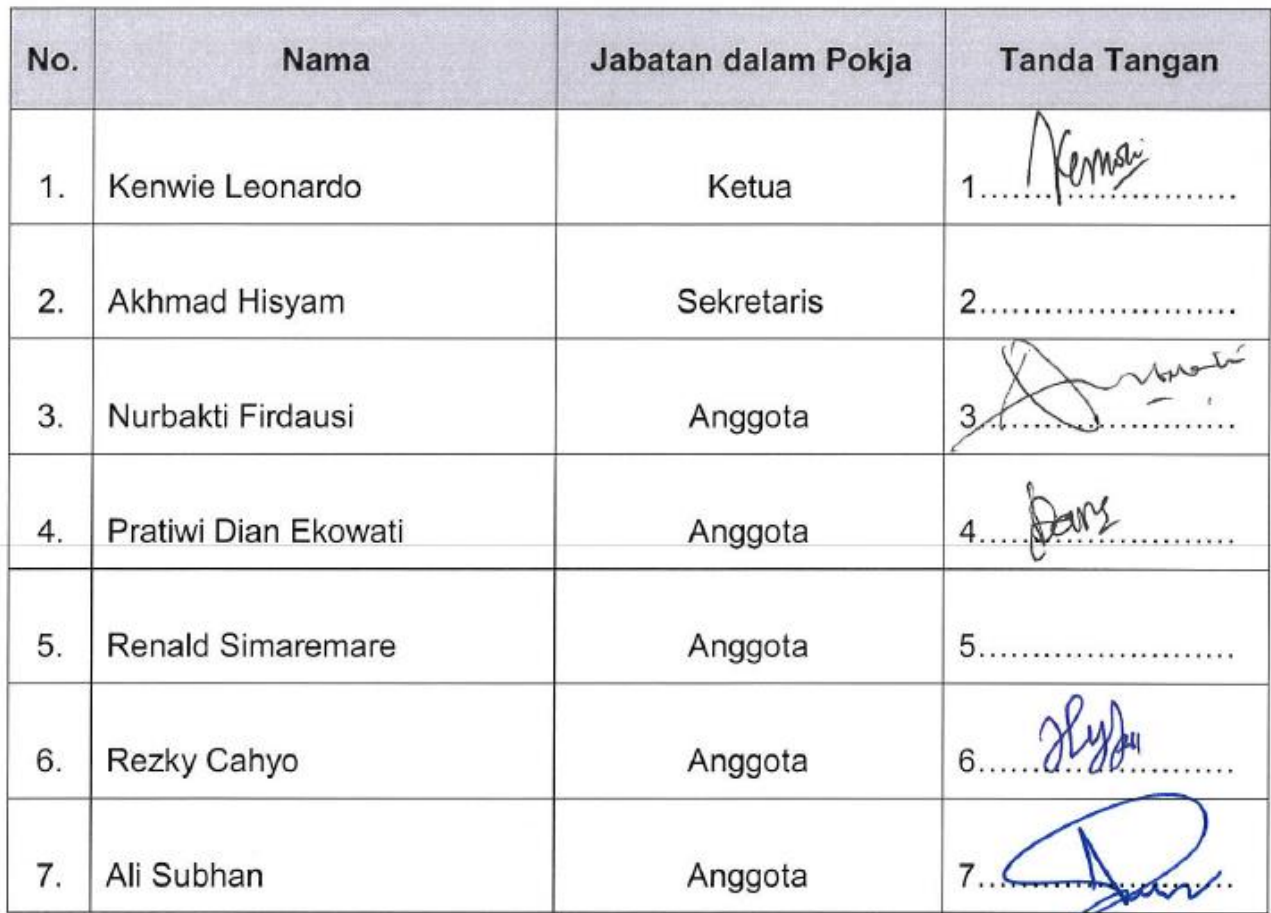 No. Nama Jabatan dalam Pokja Tanda Tangan
1. Kenwie Leonardo Ketua 1........................
2. Akhmad Hisyam Sekretaris 2........................
3. Nurbakti Firdausi Anggota 3........................
4. Pratiwi Dian Ekowati Anggota 4........................
5. Renald Simaremare Anggota 5........................
6. Rezky Cahyo Anggota 6........................
7. Ali Subhan Anggota 7........................